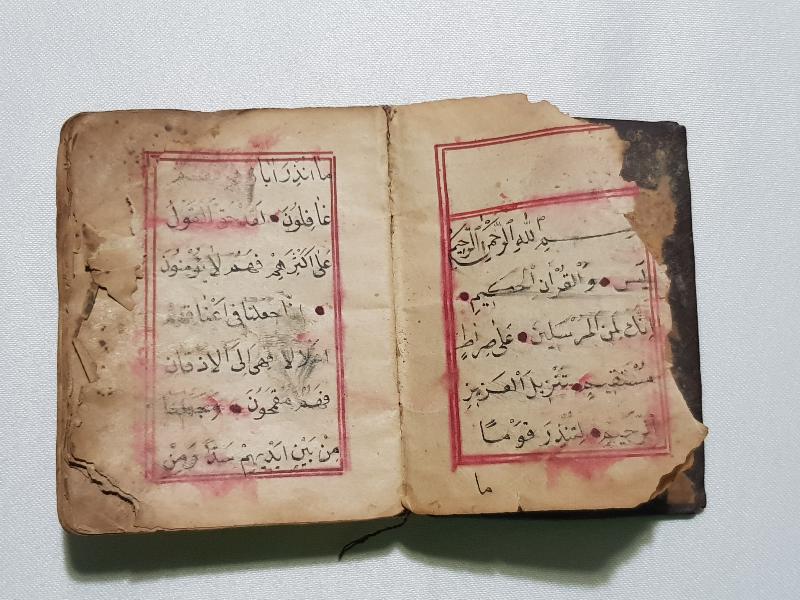 بسم الله الرحمن الرحيم
يس والقرآن الحكيم
إنك لمن المرسلين على صراط
مستقيم تنزيل العزيز
الرحيم لتنذر قوما
ما
ما انذر اباؤهم فهم
غافلون لقد حق القول
على اكثرهم فهم لا يؤمنون
انا جعلنا في اعناقهم
اغلالا فهي الى الاذقان
فهم مقمحون وجعلنا
من بين ايديهم سدا ومن